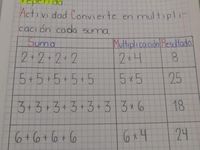 repetida
Actividad Convierte en multipli-
cación cada suma
Suma Multiplicación Resultado
2+2+2+2 2×4 8
5+5+5+5+5 5×5 25
3+3+3+3+3+3 3×6 18
6+6+6+6 6×4 24